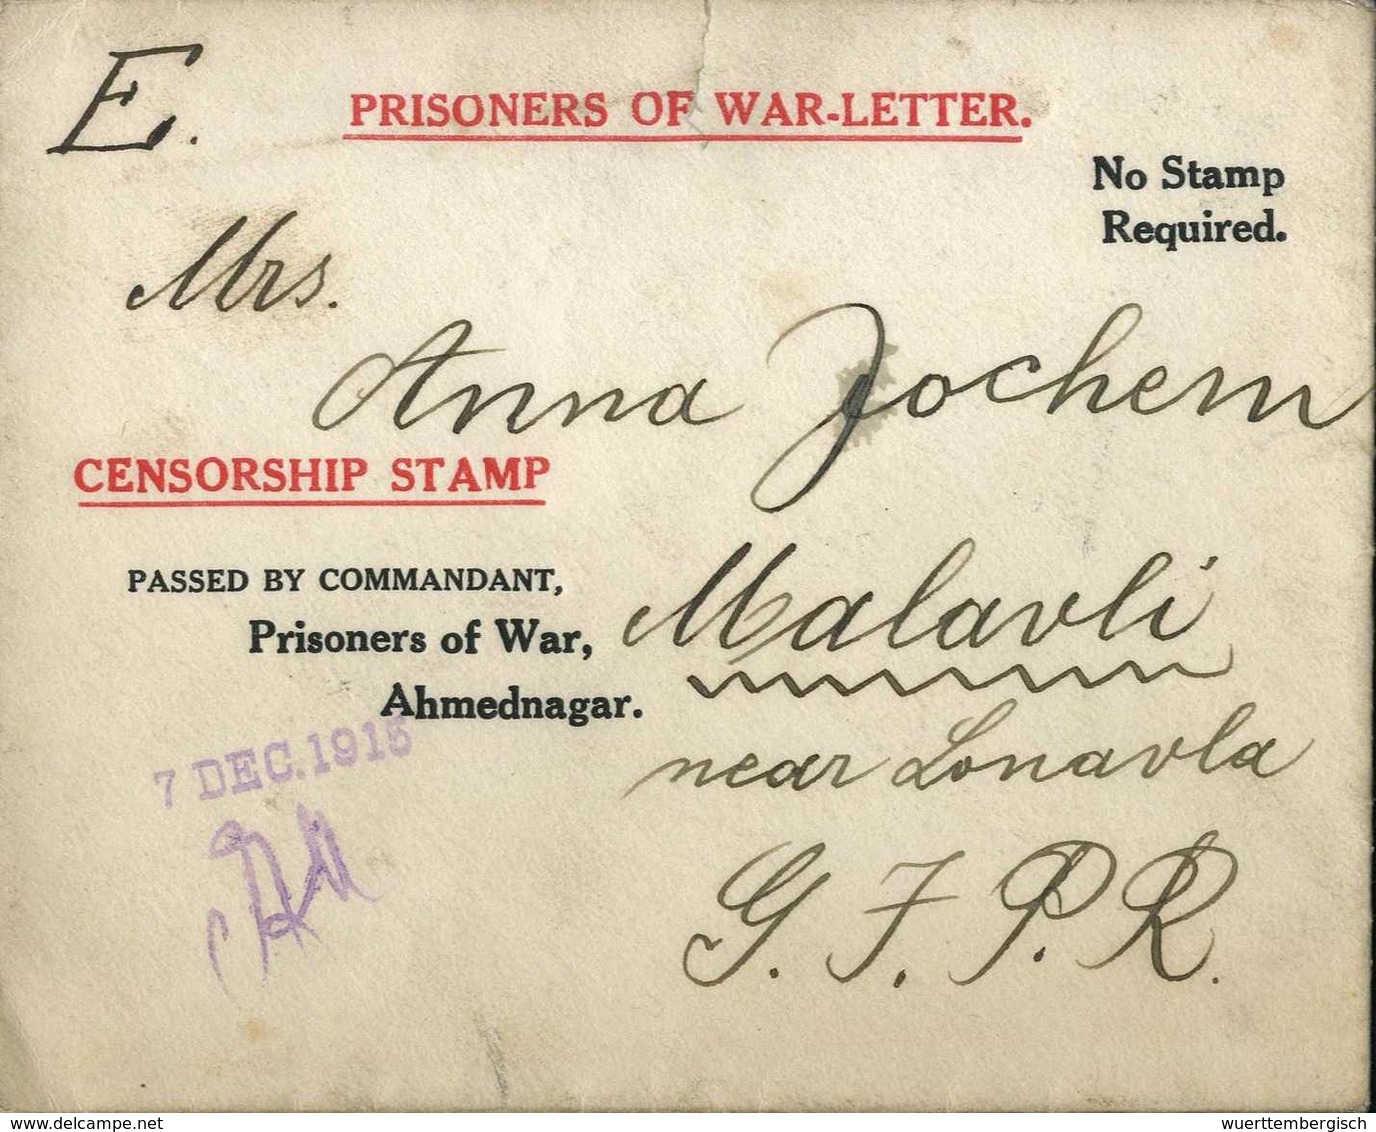 E.
PRISONERS OF WAR-LETTER.
No Stamp
Required.
Mrs.
Anna Jochem
CENSORSHIP STAMP
PASSED BY COMMANDANT,
Prisoners of War,
Ahmednagar.
Malavli
near Lonavla
G. I. P. R.
7 DEC. 1915
www.delcampe.net
wuerttembergisch